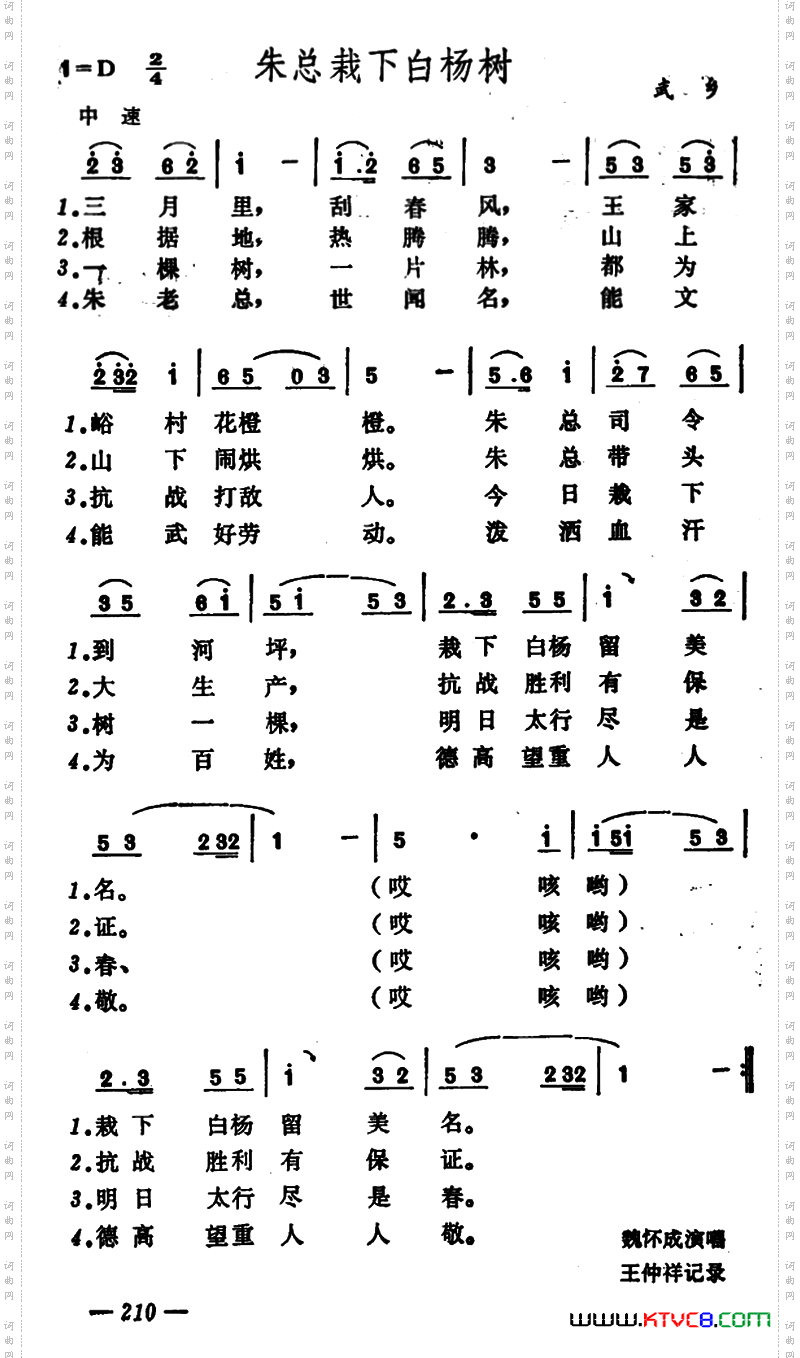 1=D 2/4 朱总栽下白杨树
武乡
中速
2 3 6 2 | i — | i . 2 6 5 | 3 — | 5 3 5 3 |
1.三月里，刮春风，王家
2.根据地，热腾腾，山上
3.一棵树，一片林，都为
4.朱老总，世闻名，能文
2 3 2 i | 6 5 0 3 | 5 — | 5 . 6 i | 2 7 6 5 |
1.峪村花橙橙。朱总司令
2.山下闹烘烘。朱总带头
3.抗战打敌人。今日栽下
4.能武好劳动。泼洒血汗
3 5 6 i | 5 i 5 3 | 2 . 3 5 5 | i 3 2 |
1.到河坪，栽下白杨留美
2.大生产，抗战胜利有保
3.树一棵，明日太行尽是
4.为百姓，德高望重人人
5 3 2 3 2 | 1 — | 5 · i | i 5 i 5 3 |
1.名。（哎咳哟）
2.证。（哎咳哟）
3.春、（哎咳哟）
4.敬。（哎咳哟）
2 . 3 5 5 | i 3 2 | 5 3 2 3 2 | 1 — :|
1.栽下白杨留美名。
2.抗战胜利有保证。
3.明日太行尽是春。
4.德高望重人人敬。
魏怀成演唱
王仲祥记录
— 210 —
www.KTVC8.com
词曲网